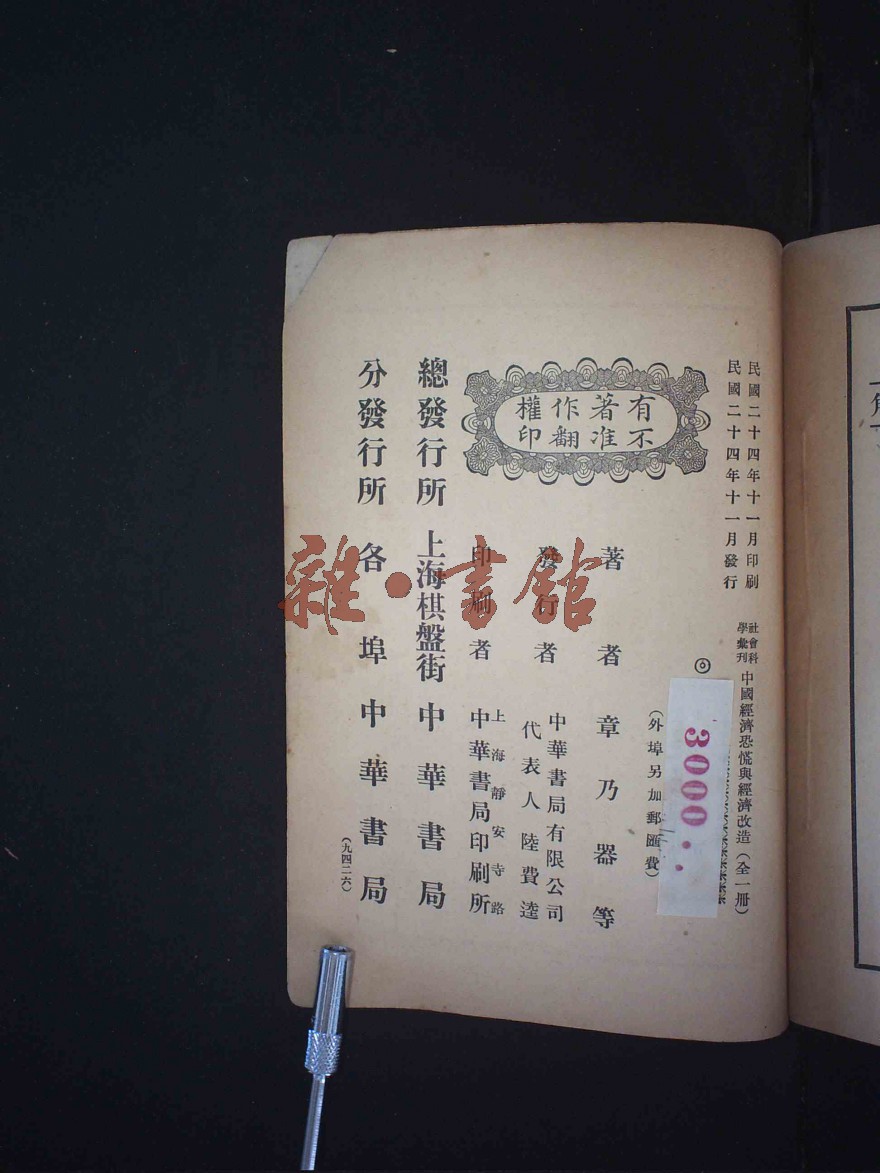 民國二十四年十一月印刷
民國二十四年十一月發行
社會科學彙刊 中國經濟恐慌與經濟改造(全一冊)
◎
3000..
(外埠另加郵匯費)
有著作權
不准翻印
著者 章乃器等
發行者 中華書局有限公司
代表人 陸費逵
印刷者 上海靜安寺路
中華書局印刷所
總發行所 上海棋盤街 中華書局
分發行所 各埠 中華書局
(九四二六)
雜·書館